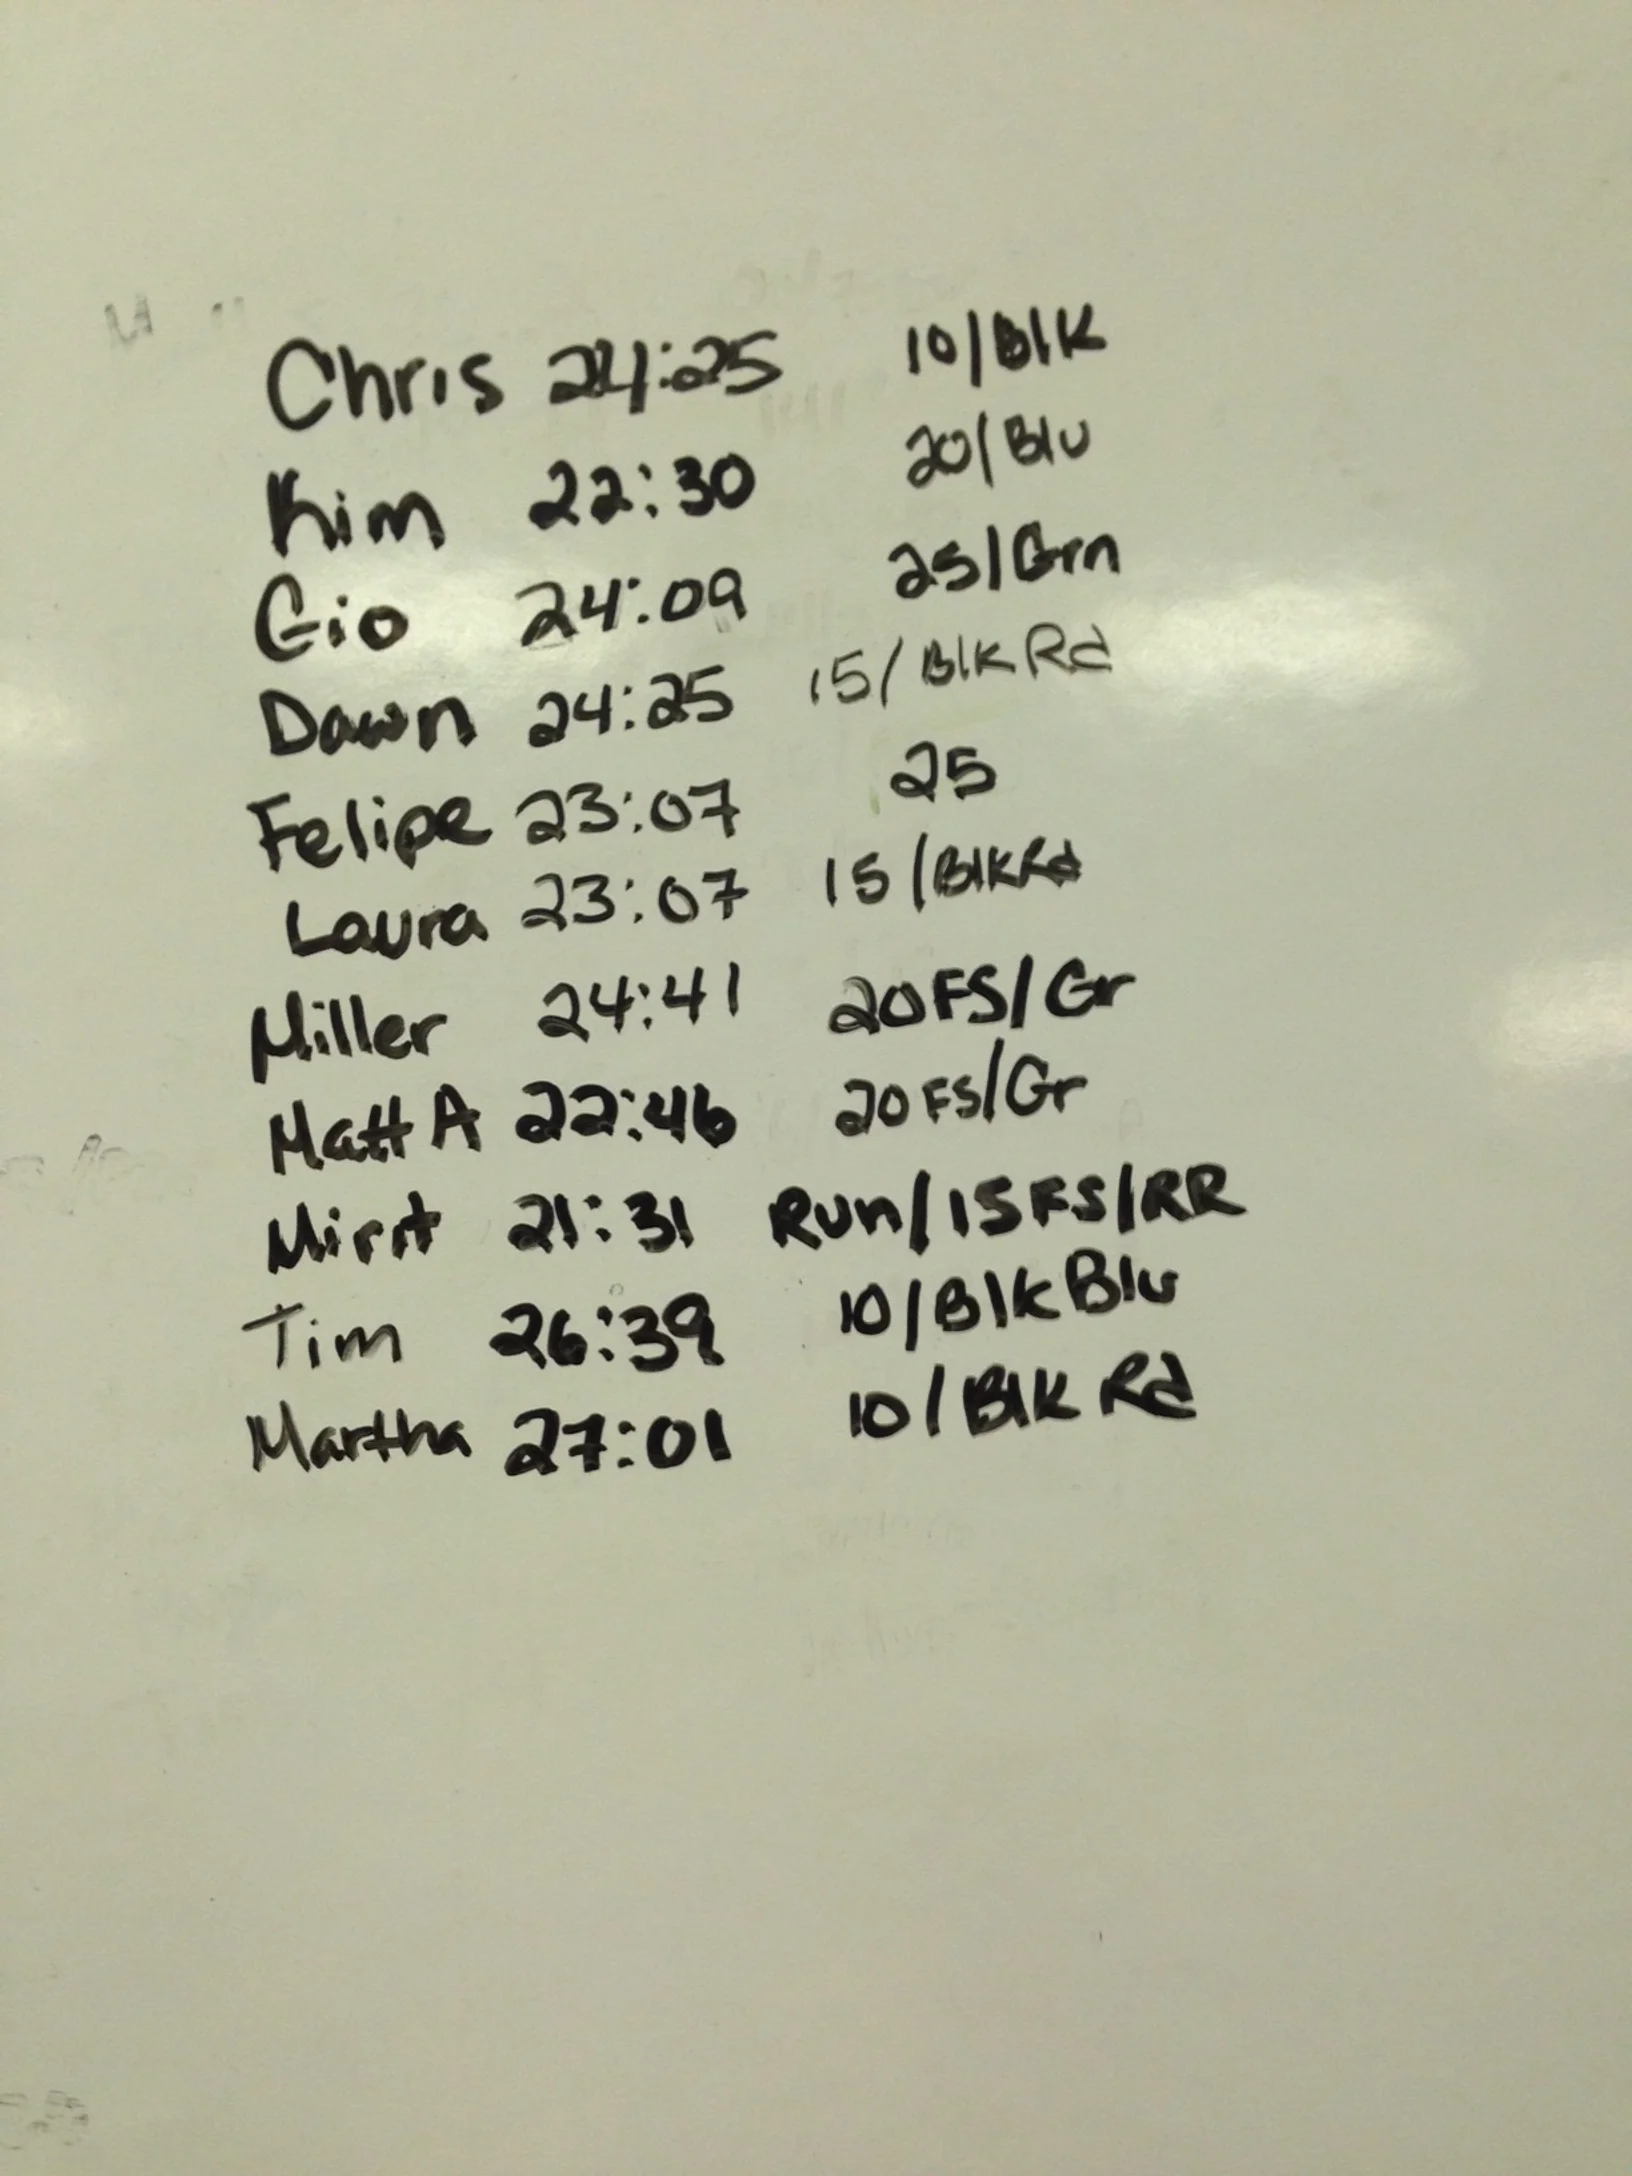 Chris 24:25 10/Blk
Kim 22:30 20/Blu
Gio 24:09 25/Grn
Dawn 24:25 15/BlkRd
Felipe 23:07 25
Laura 23:07 15/BlkRd
Miller 24:41 20FS/Gr
Matt A 22:46 20FS/Gr
21:31 Run/15FS/RR
Tim 26:39 10/BlkBlu
Martha 27:01 10/Blk Rd